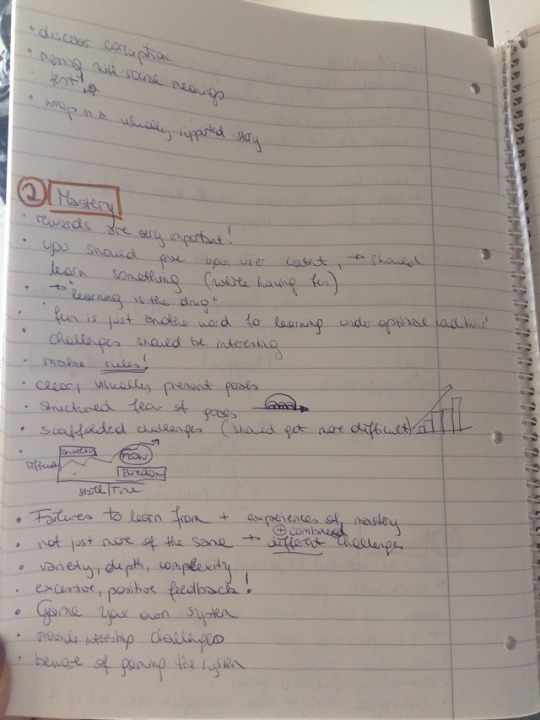 • discover corruption
• mening with some meanings
• test!
• wrap in a usually supported story
② Mastery
• rewards are very important!
• you should give your user content, → should
learn something (while having fun)
• → "learning is the drug"
• fun is just another word for learning under optimal conditions"
• challenges should be interesting
• make rules!
• clear, usually present goals
• structured flow of goals
• scaffolded challenges (should get more difficult)
• Difficulty Anxiety Flow Boredom
Skill/Time
• Failures to learn from + experiences of mastery
⊕ combined
• not just more of the same → different challenges
• variety, depth, complexity
• excessive, positive feedback!
• Game your own system
• challenges
• beware of gaming the system